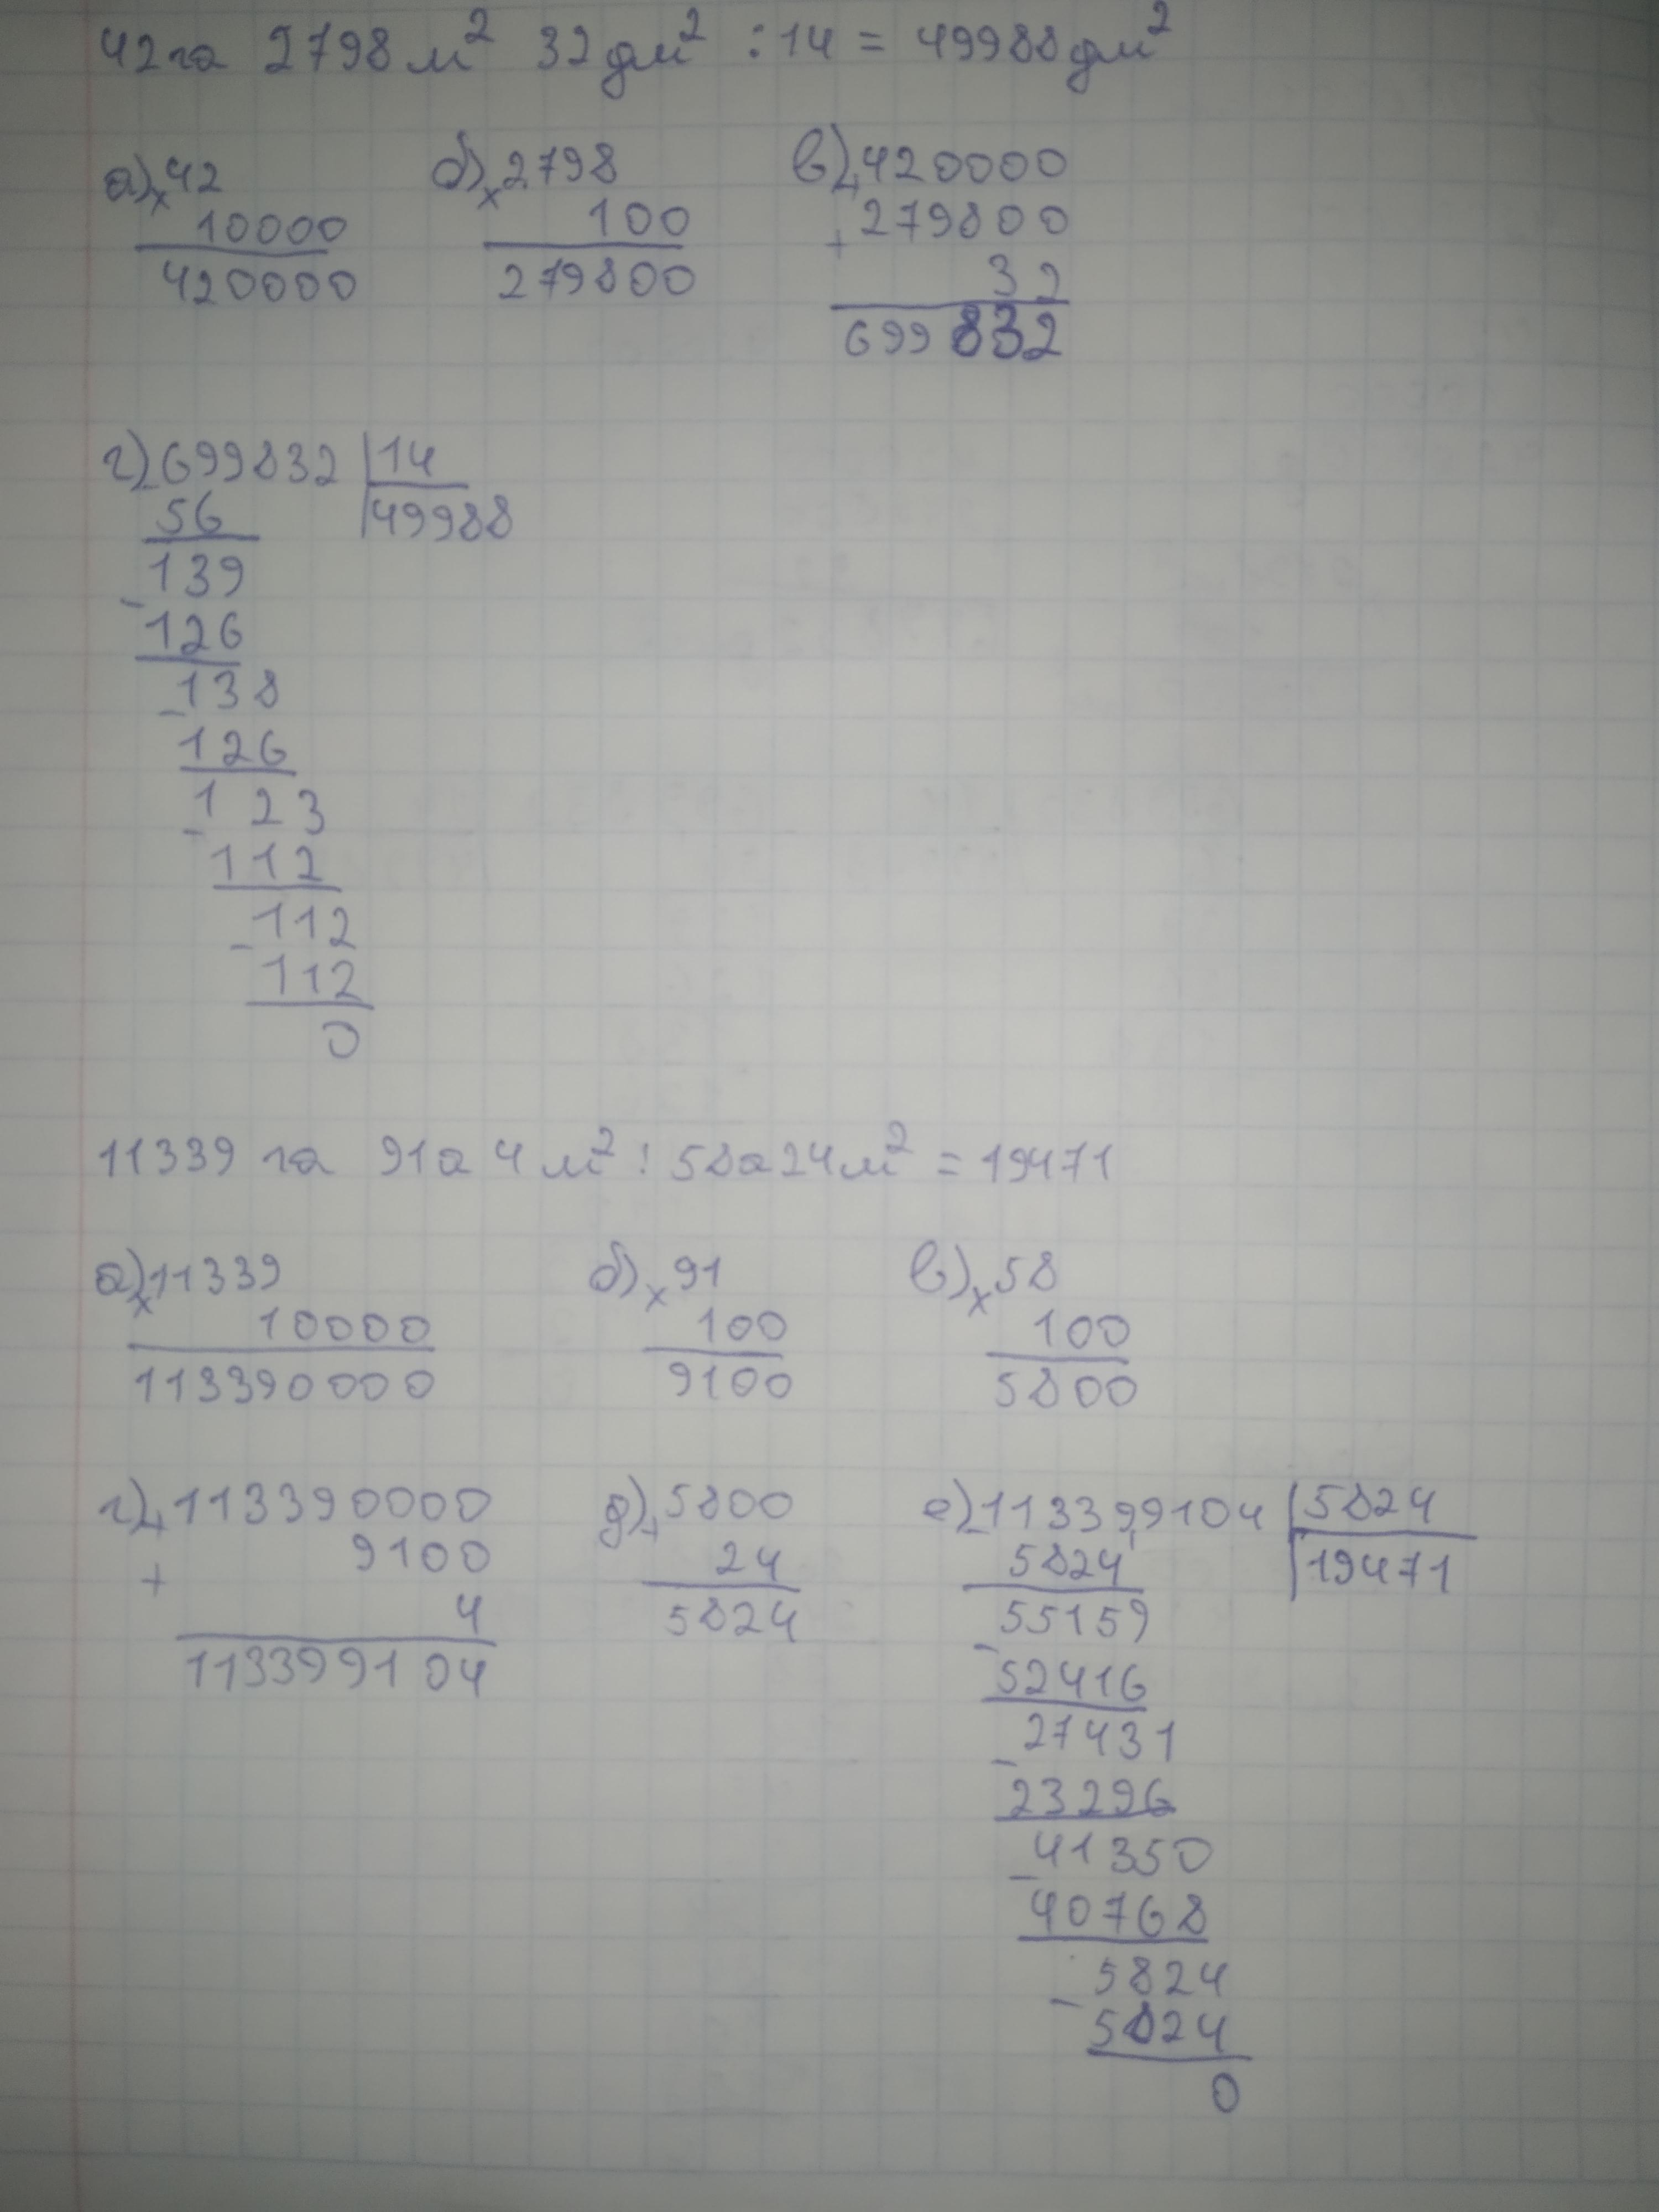 42га 2798 м² 32 дм² : 14 = 49988 дм²
а) × 42 б) × 2798 в) + 420000
10000 100 + 279800
420000 279800 32
699832
г) - 699832 | 14
56 49988
139
- 126
- 138
126
- 123
112
- 112
112
0
11339 га 91а 4 м² : 58а 24 м² = 19471
а) × 11339 б) × 91 в) × 58
10000 100 100
113390000 9100 5800
г) + 113390000 д) + 5800 е) - 113399104 | 5824
+ 9100 24 5824 19471
4 5824 - 55159
113399104 52416
- 27431
23296
- 41350
40768
- 5824
5824
0